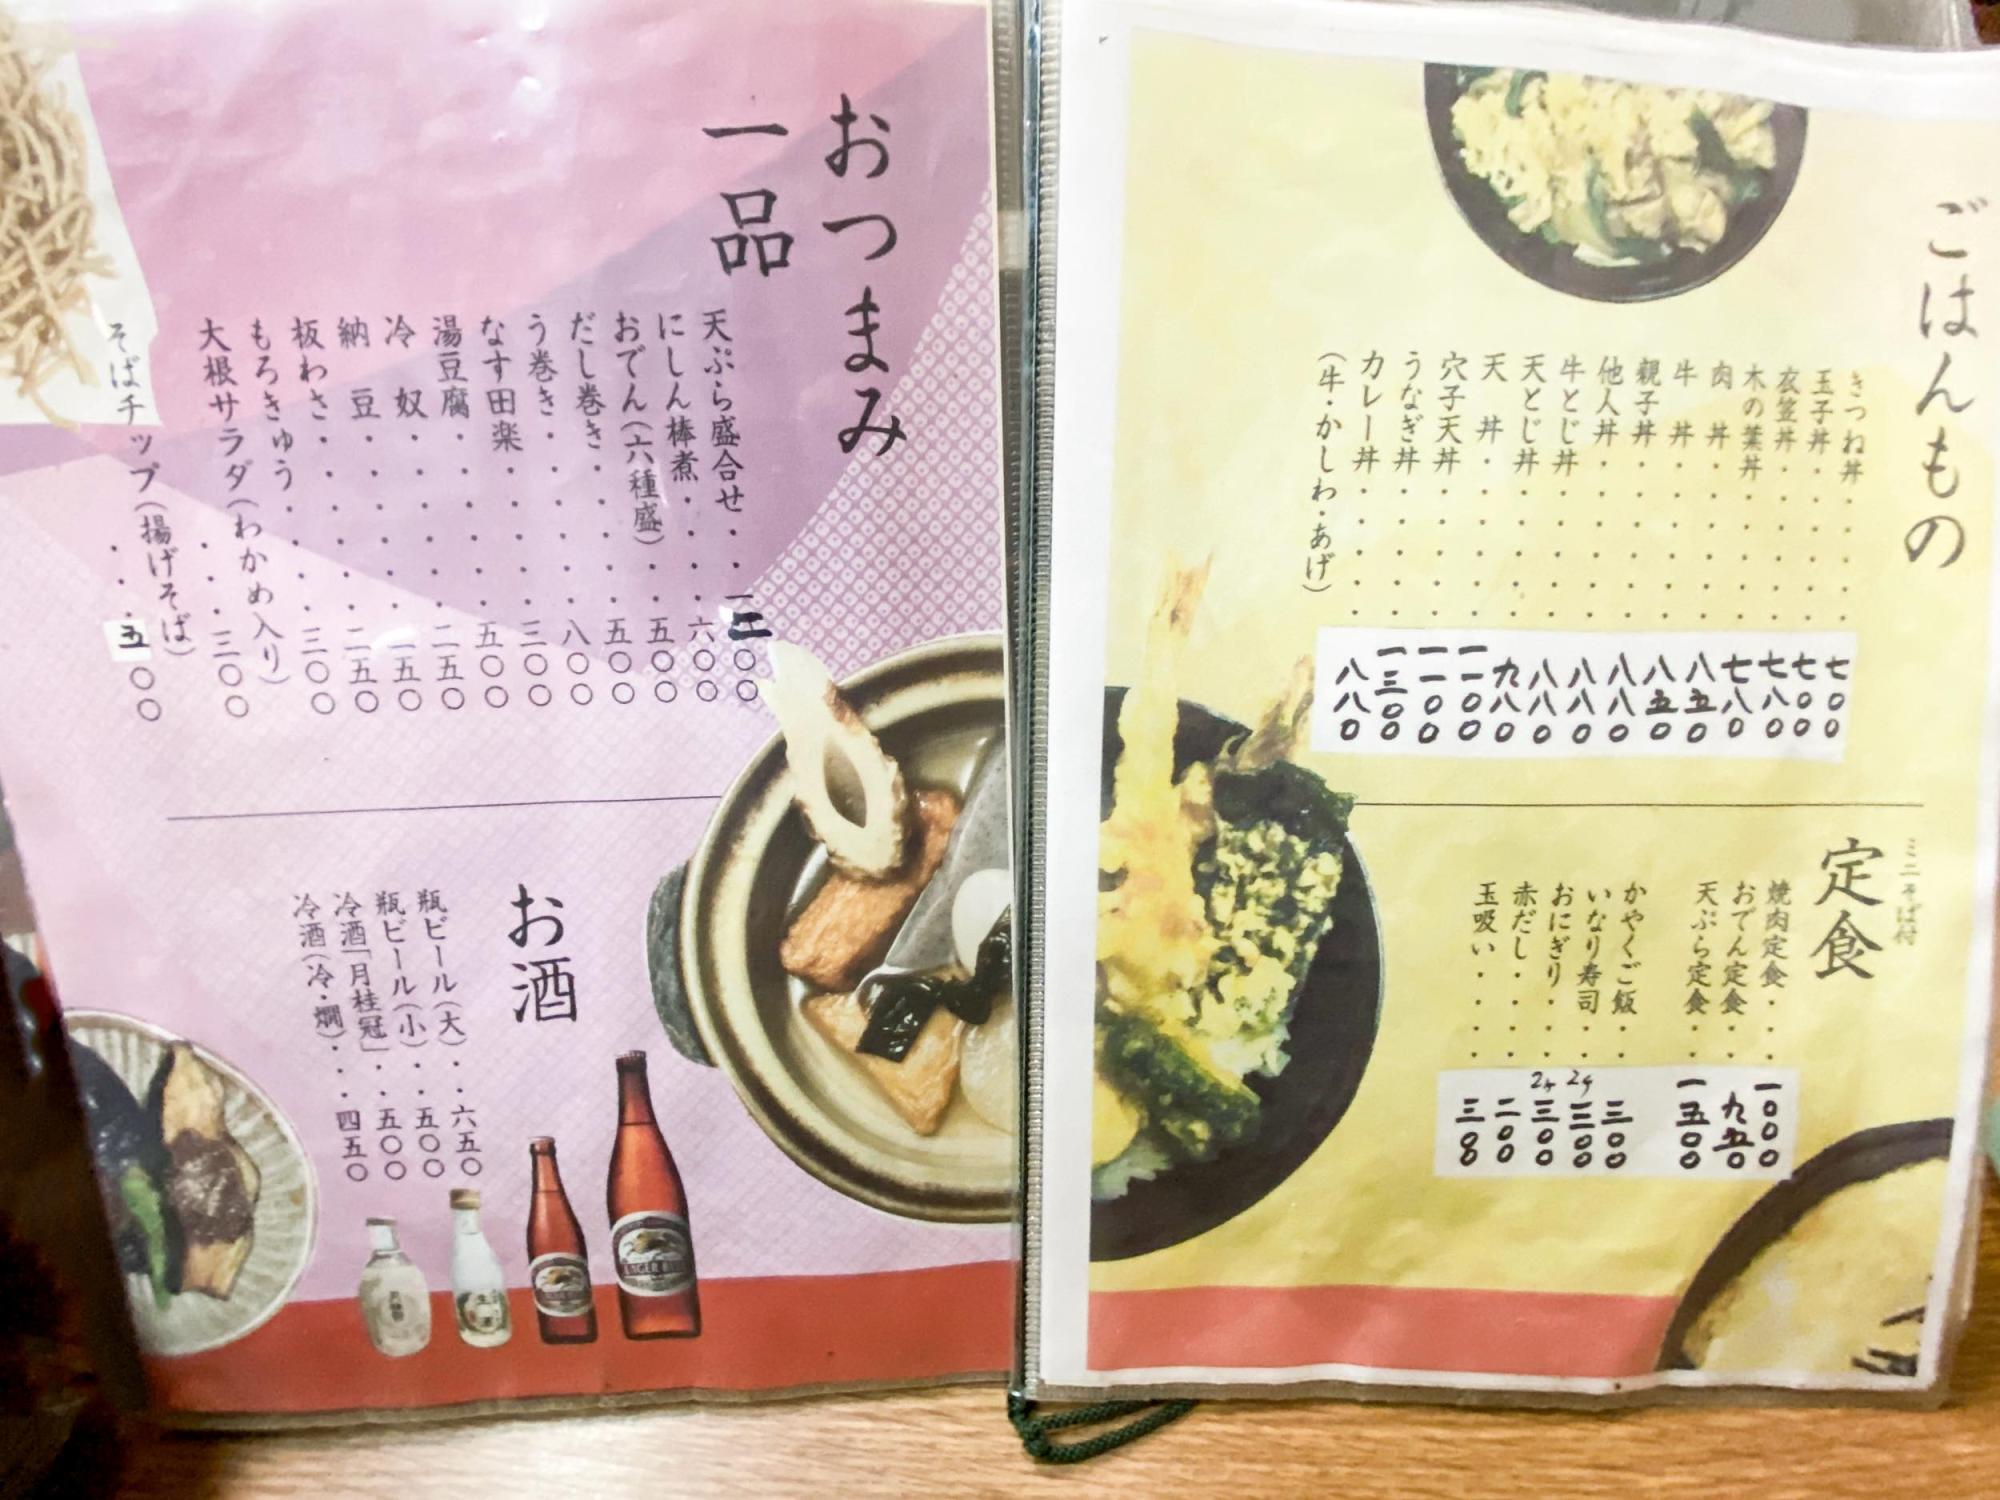 ごはんもの
きつね丼・・・・・七〇〇
玉子丼・・・・・七〇〇
衣笠丼・・・・・七八〇
木の葉丼・・・・・七八〇
肉丼・・・・・八五〇
牛丼・・・・・八五〇
親子丼・・・・・八八〇
他人丼・・・・・八八〇
牛とじ丼・・・・・八八〇
天とじ丼・・・・・九八〇
天丼・・・・・一一〇〇
穴子天丼・・・・・一一〇〇
うなぎ丼・・・・・一三〇〇
カレー丼・・・・・八八〇
(牛・かしわ・あげ)
ミニそば付
定食
焼肉定食・・・一〇〇〇
おでん定食・・・九五〇
天ぷら定食・・一五〇〇
かやくご飯・・三〇〇
いなり寿司・・2ヶ三〇〇
おにぎり・・・2ヶ三〇〇
赤だし・・・・二〇〇
玉吸い・・・・三〇〇
おつまみ
一品
天ぷら盛合せ・・一三〇〇
にしん棒煮・・・・六〇〇
おでん(六種盛)・・五〇〇
だし巻き・・・・・五〇〇
う巻き・・・・・八〇〇
なす田楽・・・・三〇〇
湯豆腐・・・・・五〇〇
冷奴・・・・・二五〇
納豆・・・・・一五〇
板わさ・・・・・二五〇
もろきゅう・・・・三〇〇
大根サラダ(わかめ入り)
・・・三〇〇
そばチップ(揚げそば)
・・・五〇〇
お酒
瓶ビール(大)・・六五〇
瓶ビール(小)・・五〇〇
冷酒「月桂冠」・・五〇〇
冷酒(冷・燗)・・・四五〇
LAGER BEER